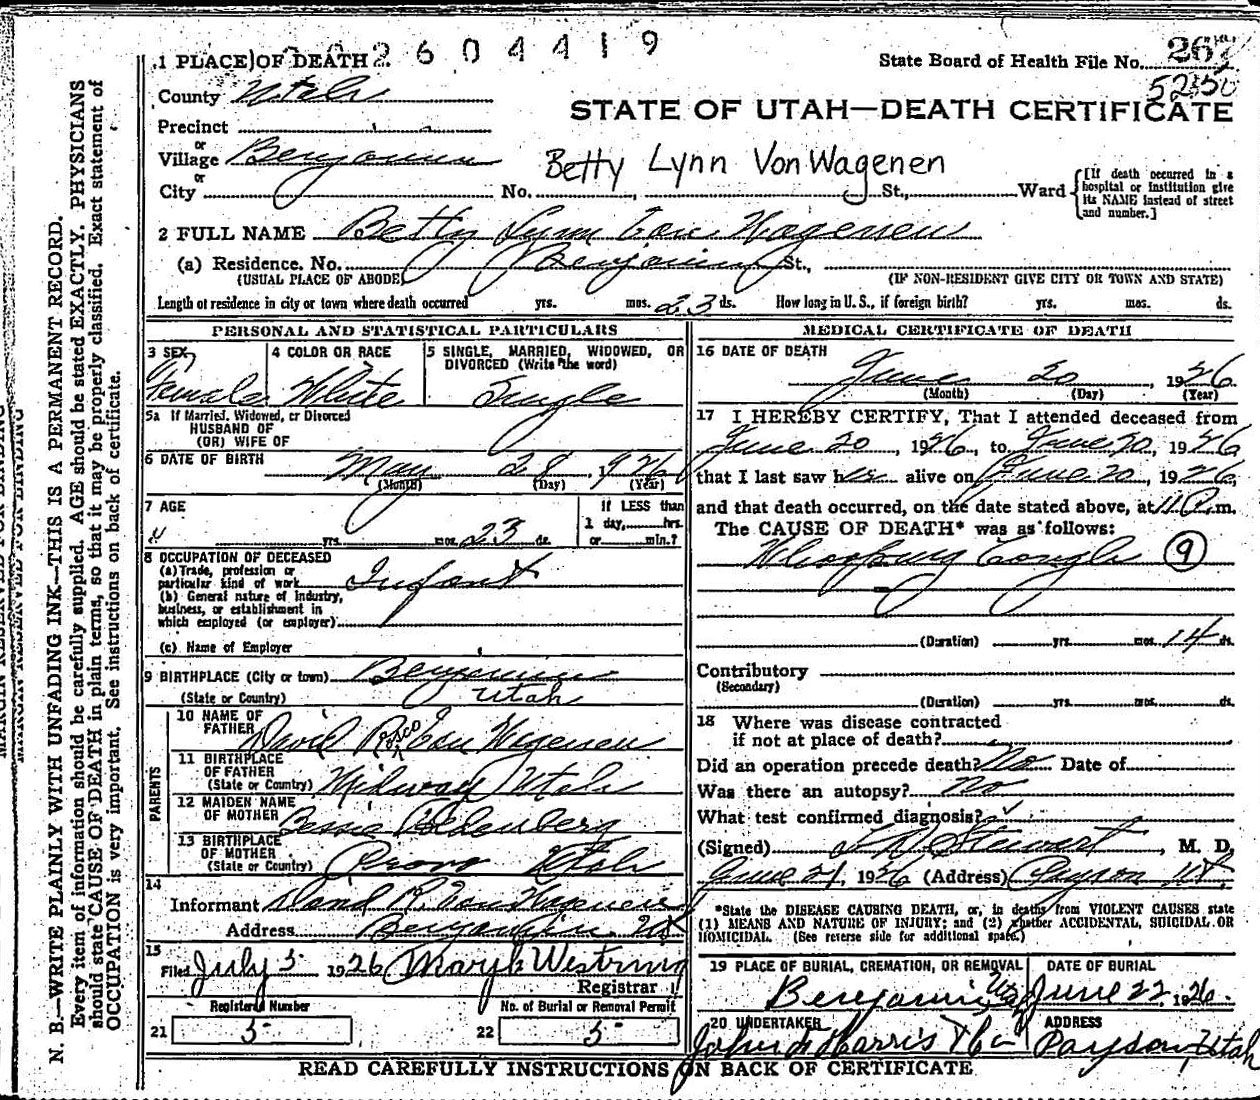 2 6 0 4 4 1 9
1 PLACE OF DEATH
State Board of Health File No. 267
5250
County Utah
STATE OF UTAH—DEATH CERTIFICATE
Precinct
or
Village Benjamin
Betty Lynn VonWagenen
or
City No. St., Ward
[If death occurred in a hospital or institution give its NAME instead of street and number.]
2 FULL NAME Betty Lynn Von Wagenen
(a) Residence. No. Benjamin St.,
(USUAL PLACE OF ABODE) (IF NON-RESIDENT GIVE CITY OR TOWN AND STATE)
Length of residence in city or town where death occurred yrs. mos. 23 ds. How long in U. S., if foreign birth? yrs. mos. ds.
PERSONAL AND STATISTICAL PARTICULARS
3 SEX 4 COLOR OR RACE 5 SINGLE, MARRIED, WIDOWED, OR DIVORCED (Write the word)
Female White Single
5a If Married, Widowed, or Divorced
HUSBAND OF
(OR) WIFE OF
6 DATE OF BIRTH May 28 1926
(Month) (Day) (Year)
7 AGE If LESS than
1 day, hrs.
yrs. mos. 23 ds. or min.?
8 OCCUPATION OF DECEASED
(a) Trade, profession or
particular kind of work Infant
(b) General nature of Industry,
business, or establishment in
which employed (or employer)
(c) Name of Employer
9 BIRTHPLACE (City or town) Benjamin
(State or Country) Utah
PARENTS
10 NAME OF
FATHER David Rosco Von Wagenen
11 BIRTHPLACE
OF FATHER
(State or Country) Midway Utah
12 MAIDEN NAME
OF MOTHER Bessie
13 BIRTHPLACE
OF MOTHER
(State or Country) Provo Utah
14
Informant David R. Von Wagenen
Address Benjamin Ut
15
Filed July 5 1926 Mary L Westring
Registrar
Registered Number No. of Burial or Removal Permit
21 5 22 5
MEDICAL CERTIFICATE OF DEATH
16 DATE OF DEATH
June 20, 1926
(Month) (Day) (Year)
17 I HEREBY CERTIFY, That I attended deceased from
June 20, 1926, to June 20, 1926
that I last saw her alive on June 20, 1926,
and that death occurred, on the date stated above, at 11 P.m.
The CAUSE OF DEATH* was as follows:
Whooping Cough 9
(Duration) yrs. mos. 14 ds.
Contributory
(Secondary)
(Duration) yrs. mos. ds.
18 Where was disease contracted
if not at place of death?
Did an operation precede death? No Date of
Was there an autopsy? No
What test confirmed diagnosis?
(Signed) Stewart, M. D.
June 21, 1926 (Address) Payson Ut.
*State the DISEASE CAUSING DEATH, or, in deaths from VIOLENT CAUSES state
(1) MEANS AND NATURE OF INJURY; and (2) whether ACCIDENTAL, SUICIDAL OR
HOMICIDAL. (See reverse side for additional space.)
19 PLACE OF BURIAL, CREMATION, OR REMOVAL DATE OF BURIAL
Benjamin Utah June 22 1926
20 UNDERTAKER ADDRESS
John F Harris & Co Payson, Utah
READ CAREFULLY INSTRUCTIONS ON BACK OF CERTIFICATE
MARGIN RESERVED FOR BINDING
N. B.—WRITE PLAINLY WITH UNFADING INK—THIS IS A PERMANENT RECORD.
Every item of information should be carefully supplied. AGE should be stated EXACTLY. PHYSICIANS
should state CAUSE OF DEATH in plain terms, so that it may be properly classified. Exact statement of
OCCUPATION is very important. See instructions on back of certificate.